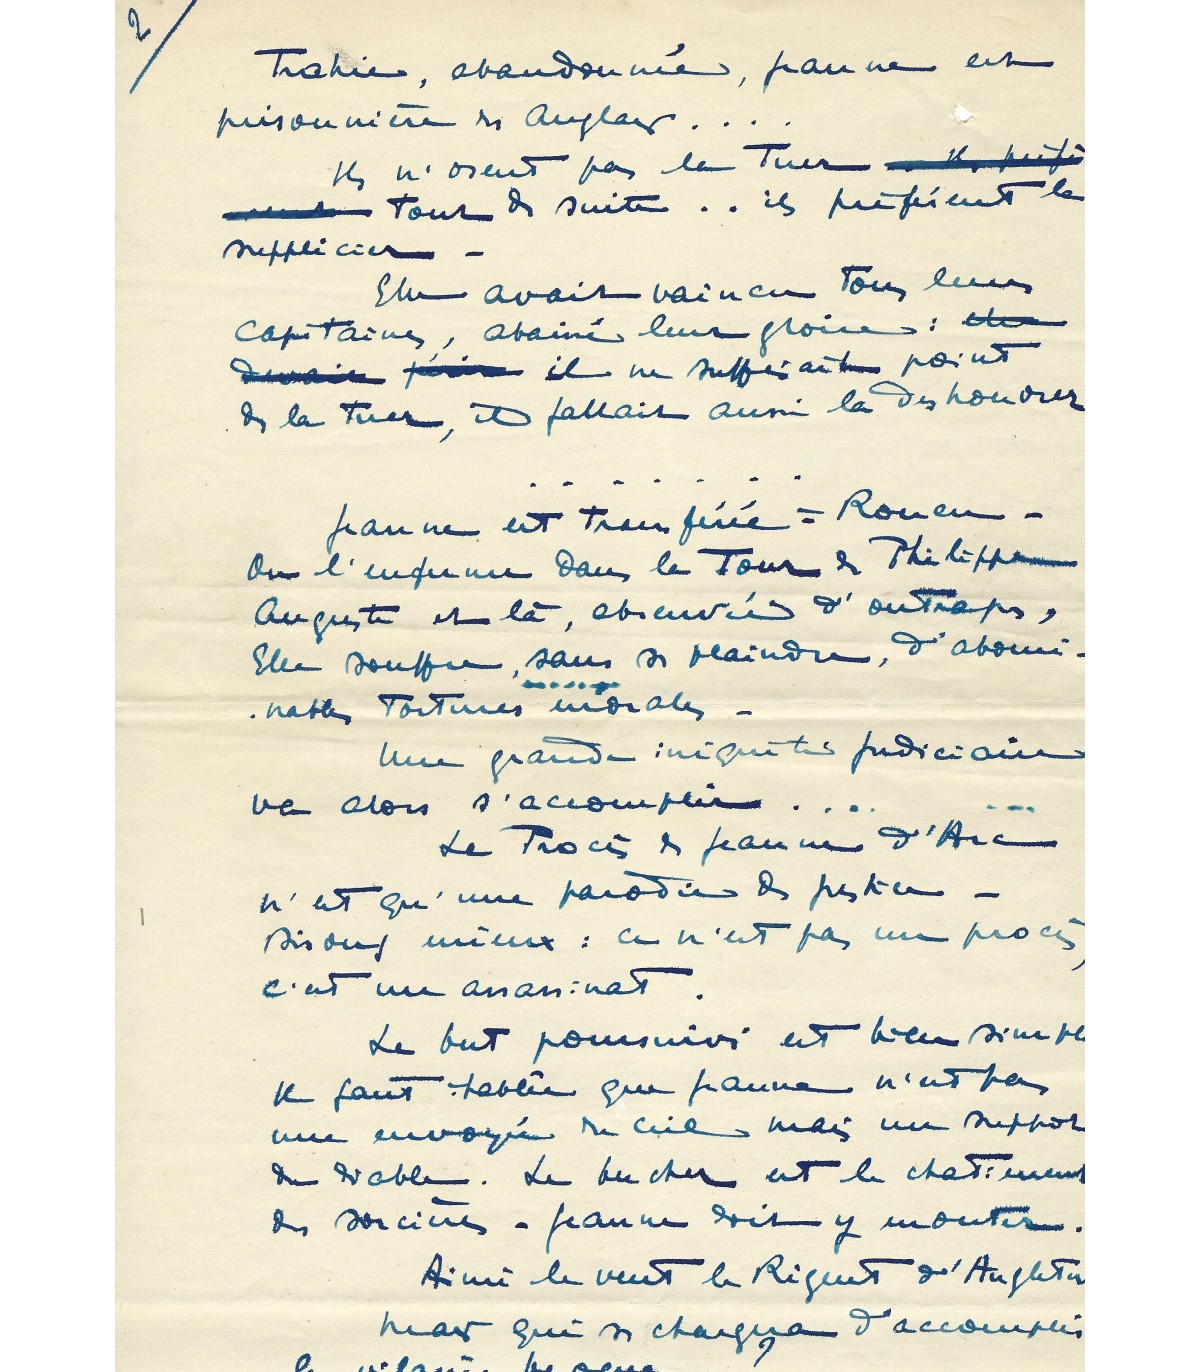 2
Trahie, abandonnée, Jeanne est
prisonnière des Anglais....
Ils n'osent pas la tuer Ils préfè
rent tout de suite .. ils préfèrent la
supplicier -
Elle avait vaincu tous leurs
capitaines, abaissé leur gloire : elle
devait périr il ne suffisait point
de la tuer, il fallait aussi la deshonorer
. . . . . . .
Jeanne est transférée à Rouen -
On l'enferme dans la Tour de Philippe
Auguste et là, abreuvée d'outrages,
Elle souffre, sans se plaindre, d'abomi-
nables tortures morales -
Une grande iniquité judiciaire
va alors s'accomplir .... ...
Le Procès de Jeanne d'Arc
n'est qu'une parodie de justice -
Disons mieux : ce n'est pas un procès,
c'est un assassinat.
Le but poursuivi est bien simple
Il faut établir que Jeanne n'est pas
une envoyée du ciel mais un suppot
du diable. Le bucher est le chatiment
des sorcières - Jeanne doit y monter.
Ainsi le veut le Régent d'Angleter
Mais qui se chargea d'accomplir
la vilaine besogne ?